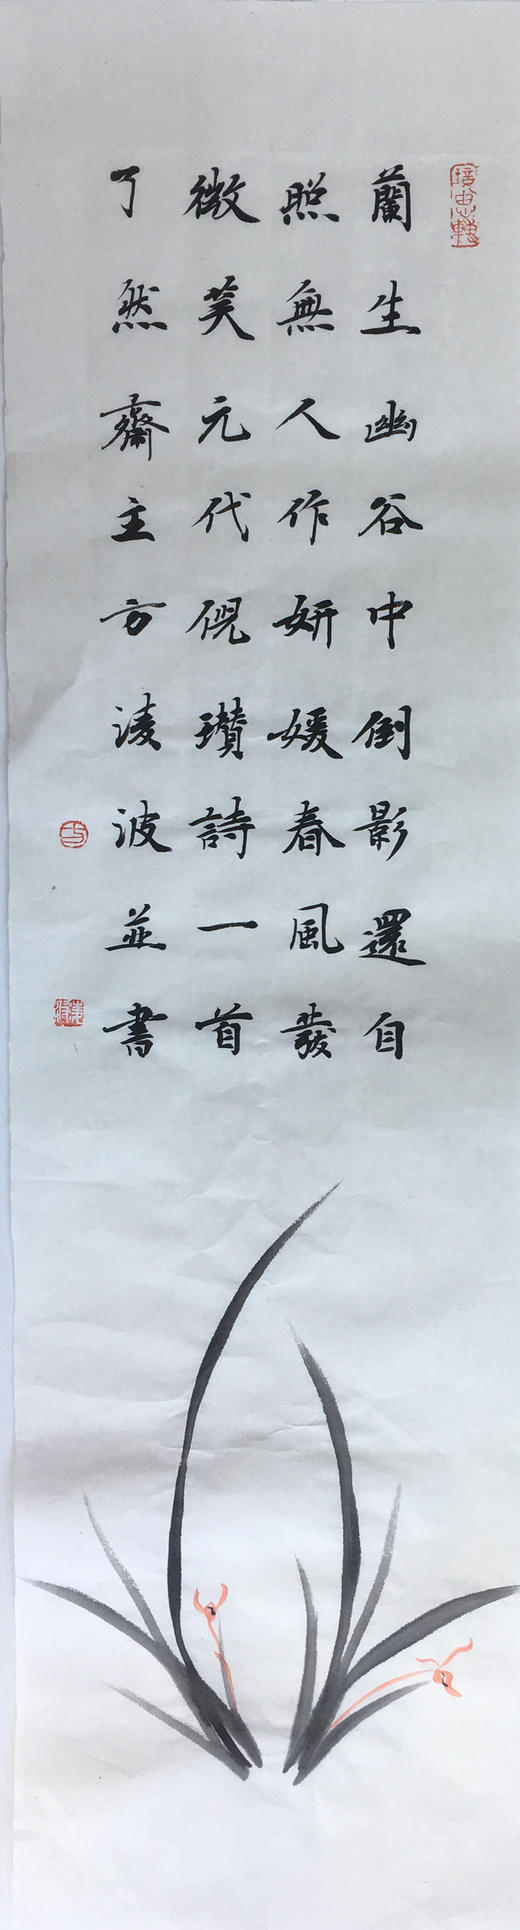 蘭生幽谷中倒影還自
照無人作妍媛春風發
微笑元代倪瓚詩一首
了然齋主方淩波並書